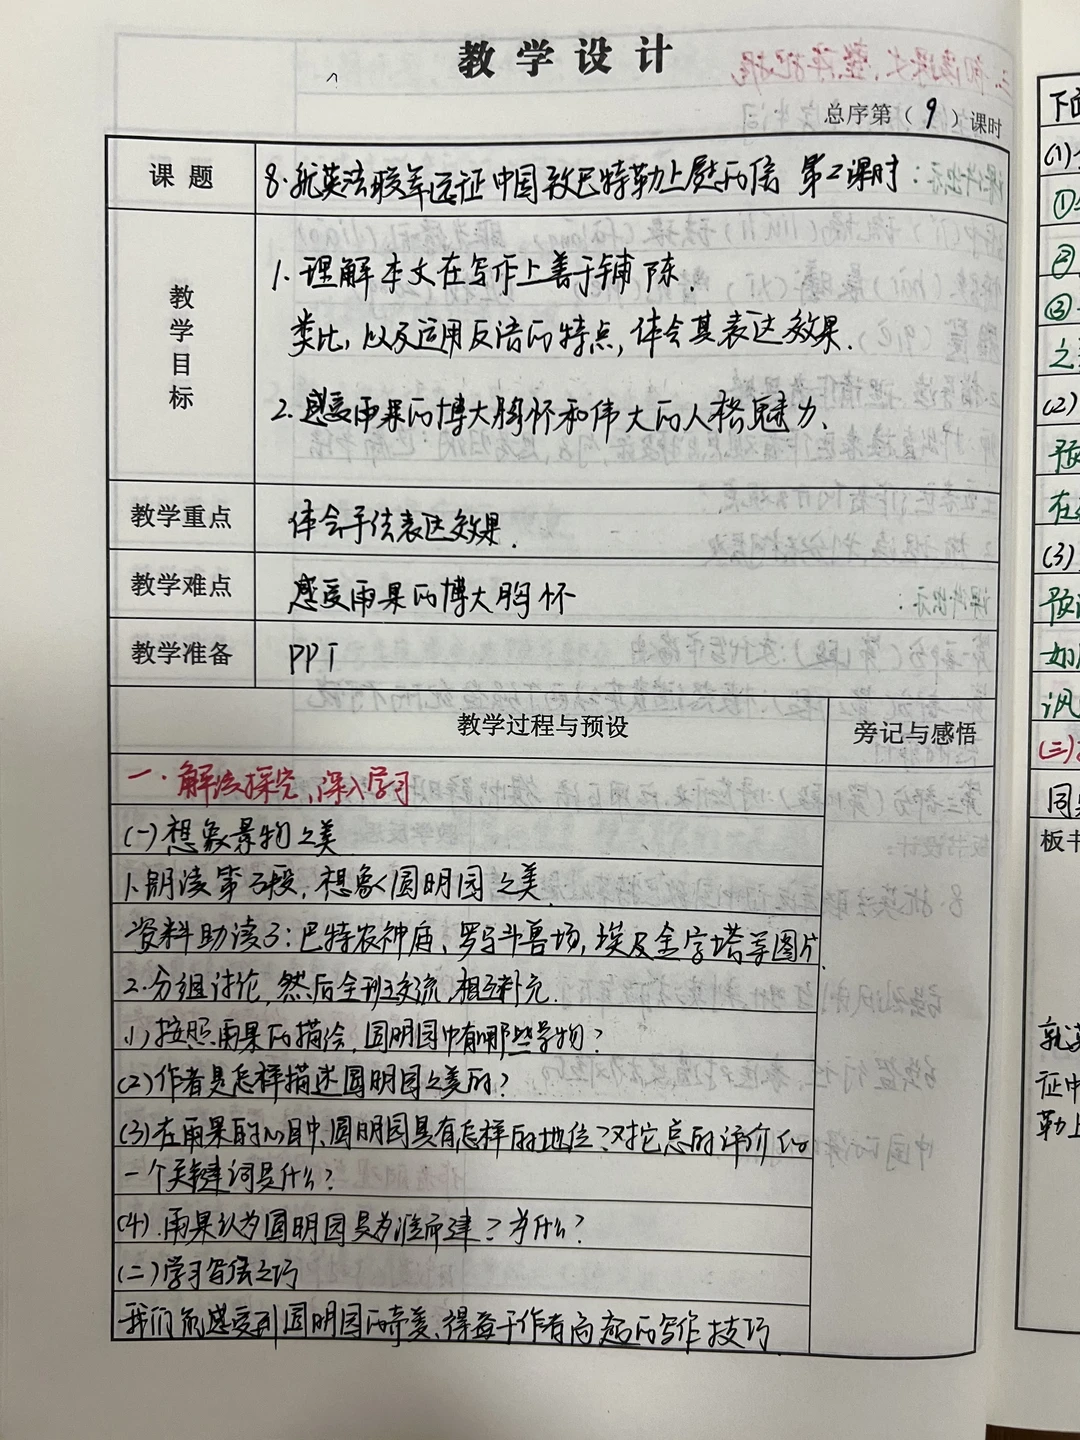 教学设计
总序第（9）课时
课题 8.就英法联军远征中国致巴特勒上尉的信 第2课时
教学目标
1.理解本文在写作上善于铺陈.
类比,以及运用反语的特点,体会其表达效果.
2.感受雨果的博大胸怀和伟大的人格魅力.
教学重点 体会手法表达效果.
教学难点 感受雨果的博大胸怀
教学准备 PPT
教学过程与预设 旁记与感悟
一.解读探究,深入学习
(一)想象景物之美
1.朗读第3段,想象圆明园之美.
资料助读3:巴特农神庙、罗马斗兽场,埃及金字塔等图片.
2.分组讨论,然后全班交流,相互补充.
(1)按照雨果的描绘,圆明园中有哪些景物?
(2)作者是怎样描述圆明园之美的?
(3)在雨果的心目中,圆明园具有怎样的地位?对它总的评价
一个关键词是什么?
(4).雨果认为圆明园是为谁而建?为什么?
(二)学习写法之巧
我们能感受到圆明园的奇美,得益于作者高超的写作技巧
下面
(1)
①
②
③
之
(2)
在
(3)
如
讽
(三)
同
板书
就英
征中
勒上